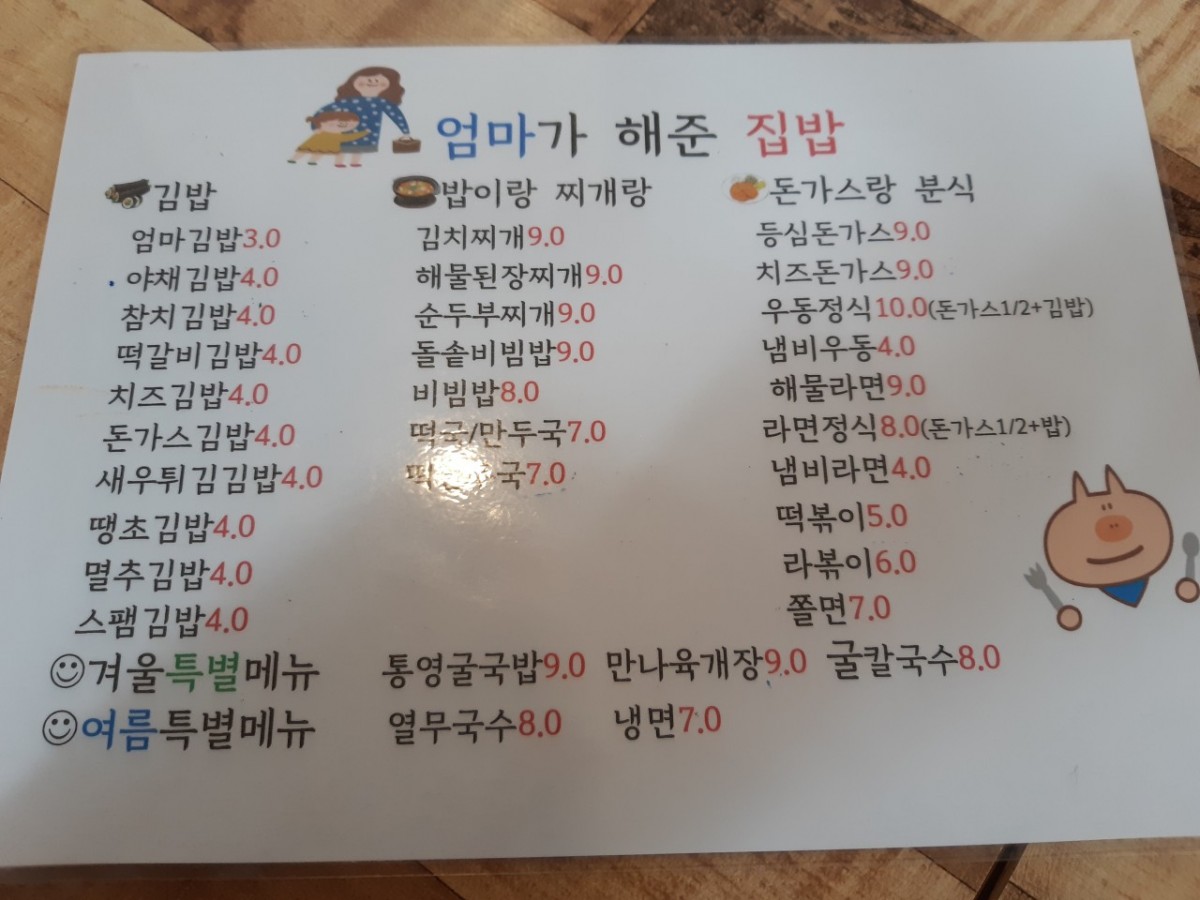 엄마가 해준 집밥
김밥
엄마김밥3.0
야채김밥4.0
참치김밥4.0
떡갈비김밥4.0
치즈김밥4.0
돈가스김밥4.0
새우튀김김밥4.0
땡초김밥4.0
멸추김밥4.0
스팸김밥4.0
밥이랑 찌개랑
김치찌개9.0
해물된장찌개9.0
순두부찌개9.0
돌솥비빔밥9.0
비빔밥8.0
떡국/만두국7.0
7.0
돈가스랑 분식
등심돈가스9.0
치즈돈가스9.0
우동정식10.0(돈가스1/2+김밥)
냄비우동4.0
해물라면9.0
라면정식8.0(돈가스1/2+밥)
냄비라면4.0
떡볶이5.0
라볶이6.0
쫄면7.0
겨울특별메뉴 통영굴국밥9.0 만나육개장9.0 굴칼국수8.0
여름특별메뉴 열무국수8.0 냉면7.0